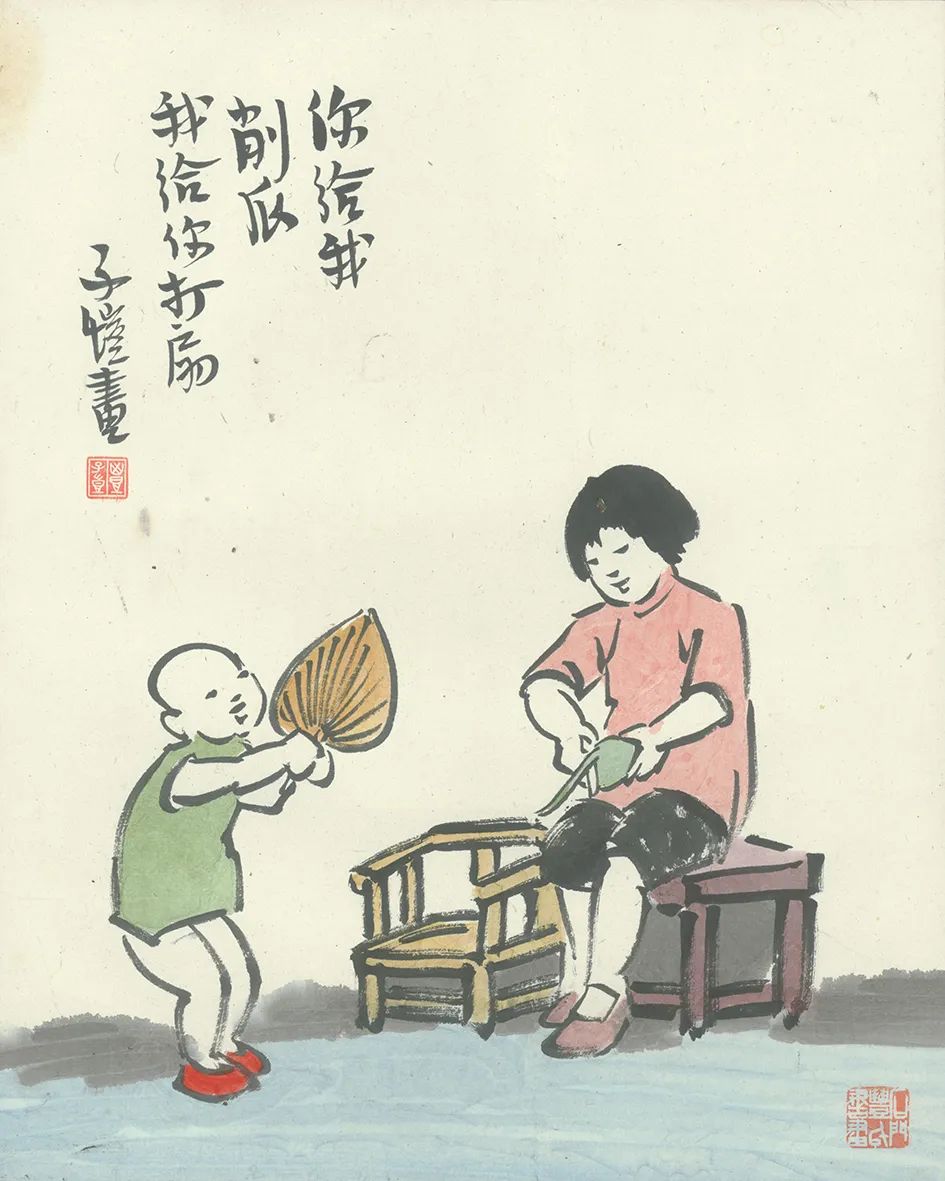 你给我
削瓜
我给你打扇
子愷畫